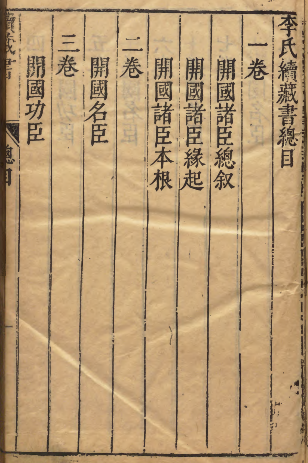 李氏續藏書總目
一卷
開國諸臣總叙
開國諸臣緣起
開國諸臣本根
二卷
開國名臣
三卷
開國功臣
續藏書
總目
一